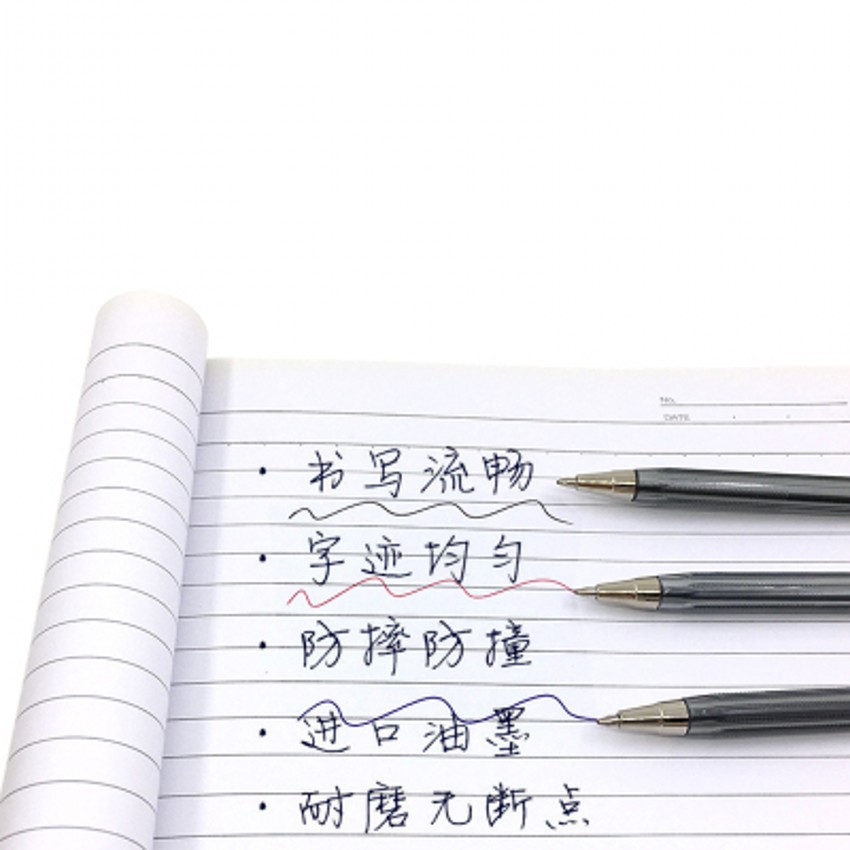 No.
DATE
• 书写流畅
• 字迹均匀
• 防摔防撞
• 进口油墨
• 耐磨无断点